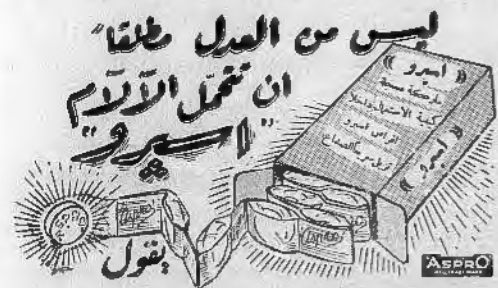 ليس من العدل مطلقاً
ان تتحمل الآلام
"اسبرو"
يقول
((اسبرو))
((اسبرو))
اقراص اسبرو
ASPRO
ASPRO
ASPRO